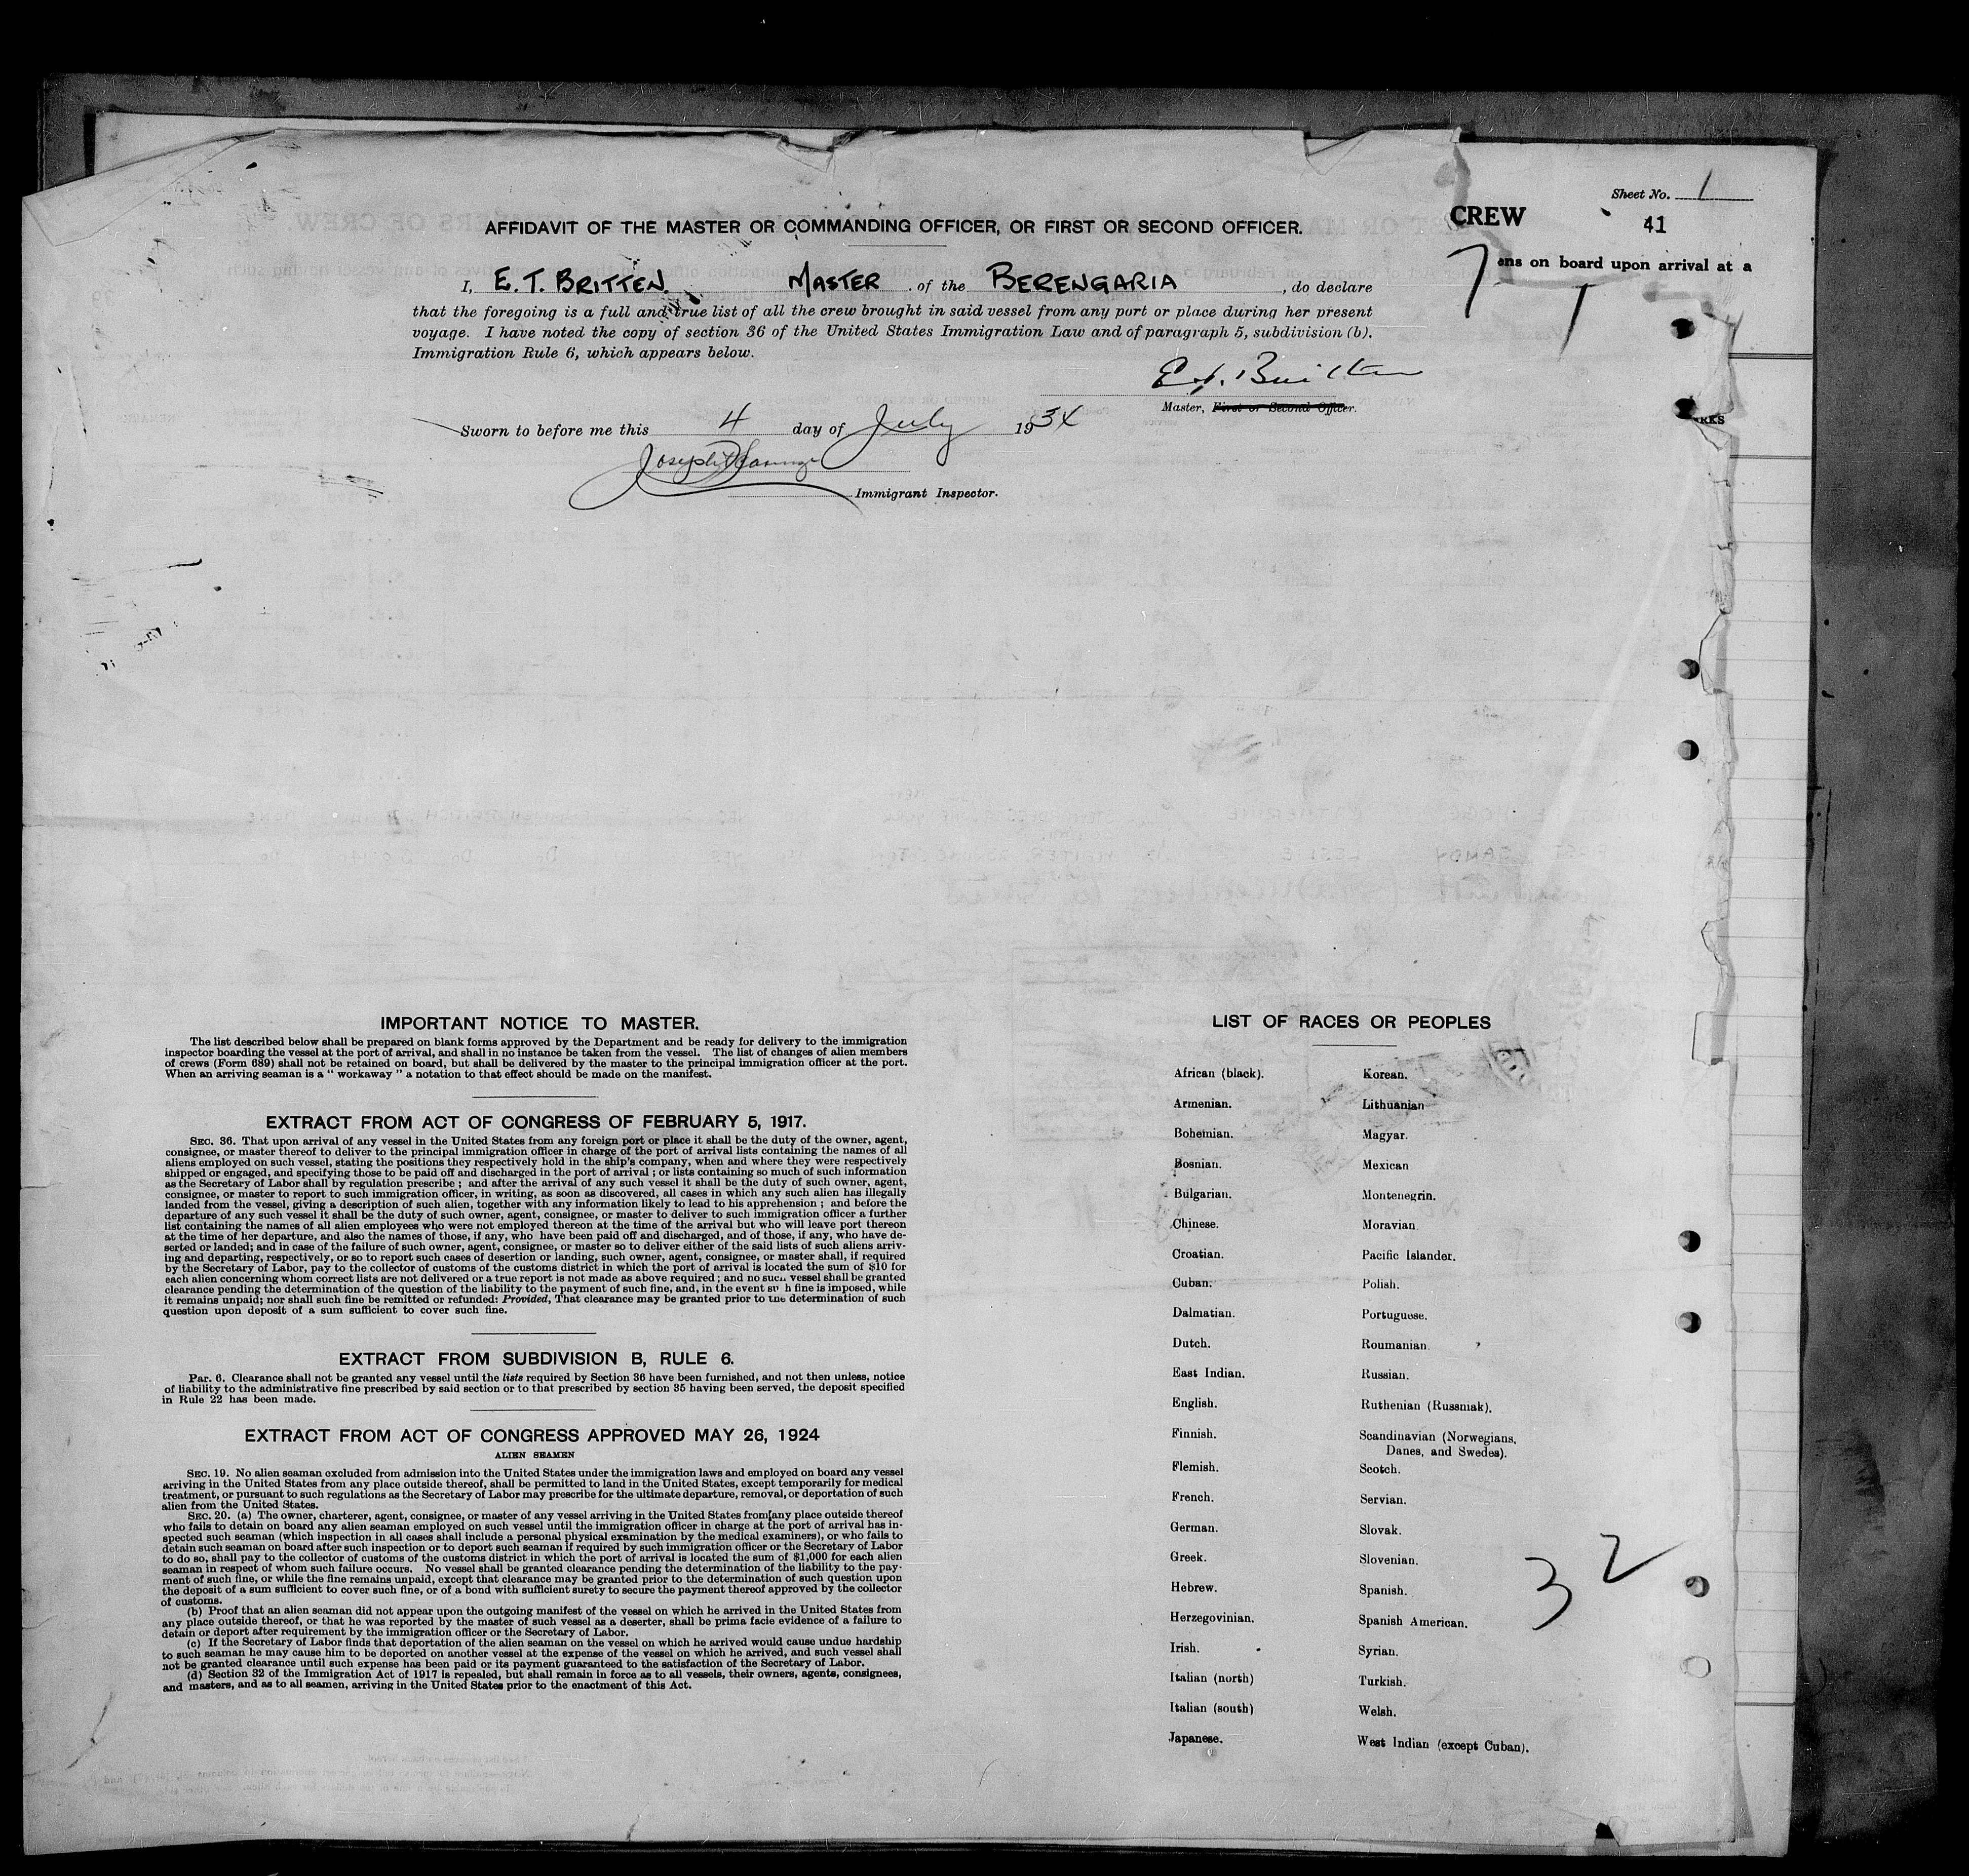 Sheet No. 1
CREW
41
AFFIDAVIT OF THE MASTER OR COMMANDING OFFICER, OR FIRST OR SECOND OFFICER.
7
ens on board upon arrival at a
I, E. T. BRITTEN. MASTER of the BERENGARIA, do declare
that the foregoing is a full and true list of all the crew brought in said vessel from any port or place during her present
voyage. I have noted the copy of section 36 of the United States Immigration Law and of paragraph 5, subdivision (b).
Immigration Rule 6, which appears below.
E. T. Britten
Master, First or Second Officer.
RKS
Sworn to before me this 4 day of July 1934
Joseph
Immigrant Inspector.
IMPORTANT NOTICE TO MASTER.
The list described below shall be prepared on blank forms approved by the Department and be ready for delivery to the immigration
inspector boarding the vessel at the port of arrival, and shall in no instance be taken from the vessel. The list of changes of alien members
of crews (Form 689) shall not be retained on board, but shall be delivered by the master to the principal immigration officer at the port.
When an arriving seaman is a " workaway " a notation to that effect should be made on the manifest.
EXTRACT FROM ACT OF CONGRESS OF FEBRUARY 5, 1917.
SEC. 36. That upon arrival of any vessel in the United States from any foreign port or place it shall be the duty of the owner, agent,
consignee, or master thereof to deliver to the principal immigration officer in charge of the port of arrival lists containing the names of all
aliens employed on such vessel, stating the positions they respectively hold in the ship's company, when and where they were respectively
shipped or engaged, and specifying those to be paid off and discharged in the port of arrival ; or lists containing so much of such information
as the Secretary of Labor shall by regulation prescribe ; and after the arrival of any such vessel it shall be the duty of such owner, agent,
consignee, or master to report to such immigration officer, in writing, as soon as discovered, all cases in which any such alien has illegally
landed from the vessel, giving a description of such alien, together with any information likely to lead to his apprehension ; and before the
departure of any such vessel it shall be the duty of such owner, agent, consignee, or master to deliver to such immigration officer a further
list containing the names of all alien employees who were not employed thereon at the time of the arrival but who will leave port thereon
at the time of her departure, and also the names of those, if any, who have been paid off and discharged, and of those, if any, who have de-
serted or landed; and in case of the failure of such owner, agent, consignee, or master so to deliver either of the said lists of such aliens arriv-
ing and departing, respectively, or so to report such cases of desertion or landing, such owner, agent, consignee, or master shall, if required
by the Secretary of Labor, pay to the collector of customs of the customs district in which the port of arrival is located the sum of $10 for
each alien concerning whom correct lists are not delivered or a true report is not made as above required ; and no such vessel shall be granted
clearance pending the determination of the question of the liability to the payment of such fine, and, in the event such fine is imposed, while
it remains unpaid; nor shall such fine be remitted or refunded: Provided, That clearance may be granted prior to the determination of such
question upon deposit of a sum sufficient to cover such fine.
EXTRACT FROM SUBDIVISION B, RULE 6.
Par. 6. Clearance shall not be granted any vessel until the lists required by Section 36 have been furnished, and not then unless, notice
of liability to the administrative fine prescribed by said section or to that prescribed by section 35 having been served, the deposit specified
in Rule 22 has been made.
EXTRACT FROM ACT OF CONGRESS APPROVED MAY 26, 1924
ALIEN SEAMEN
SEC. 19. No alien seaman excluded from admission into the United States under the immigration laws and employed on board any vessel
arriving in the United States from any place outside thereof, shall be permitted to land in the United States, except temporarily for medical
treatment, or pursuant to such regulations as the Secretary of Labor may prescribe for the ultimate departure, removal, or deportation of such
alien from the United States.
SEC. 20. (a) The owner, charterer, agent, consignee, or master of any vessel arriving in the United States from any place outside thereof
who fails to detain on board any alien seaman employed on such vessel until the immigration officer in charge at the port of arrival has in-
spected such seaman (which inspection in all cases shall include a personal physical examination by the medical examiners), or who fails to
detain such seaman on board after such inspection or to deport such seaman if required by such immigration officer or the Secretary of Labor
to do so, shall pay to the collector of customs of the customs district in which the port of arrival is located the sum of $1,000 for each alien
seaman in respect of whom such failure occurs. No vessel shall be granted clearance pending the determination of the liability to the pay-
ment of such fine, or while the fine remains unpaid, except that clearance may be granted prior to the determination of such question upon
the deposit of a sum sufficient to cover such fine, or of a bond with sufficient surety to secure the payment thereof approved by the collector
of customs.
(b) Proof that an alien seaman did not appear upon the outgoing manifest of the vessel on which he arrived in the United States from
any place outside thereof, or that he was reported by the master of such vessel as a deserter, shall be prima facie evidence of a failure to
detain or deport after requirement by the immigration officer or the Secretary of Labor.
(c) If the Secretary of Labor finds that deportation of the alien seaman on the vessel on which he arrived would cause undue hardship
to such seaman he may cause him to be deported on another vessel at the expense of the vessel on which he arrived, and such vessel shall
not be granted clearance until such expense has been paid or its payment guaranteed to the satisfaction of the Secretary of Labor.
(d) Section 32 of the Immigration Act of 1917 is repealed, but shall remain in force as to all vessels, their owners, agents, consignees,
and masters, and as to all seamen, arriving in the United States prior to the enactment of this Act.
LIST OF RACES OR PEOPLES
African (black). Korean.
Armenian. Lithuanian
Bohemian. Magyar.
Bosnian. Mexican
Bulgarian. Montenegrin.
Chinese. Moravian
Croatian. Pacific Islander.
Cuban. Polish.
Dalmatian. Portuguese.
Dutch. Roumanian.
East Indian. Russian.
English. Ruthenian (Russniak).
Finnish. Scandinavian (Norwegians,
Danes, and Swedes).
Flemish. Scotch.
French. Servian.
German. Slovak.
Greek. Slovenian.
Hebrew. Spanish.
Herzegovinian. Spanish American.
Irish. Syrian.
Italian (north) Turkish.
Italian (south) Welsh.
Japanese. West Indian (except Cuban).
32